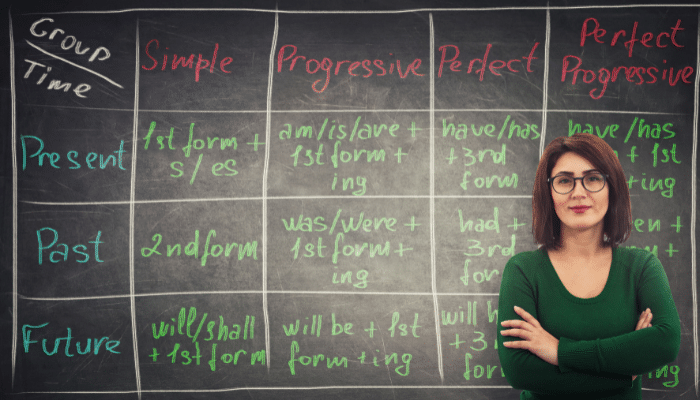 Group
Time
Simple
Progressive
Perfect
Perfect
Progressive
Present
1st form +
s/es
am/is/are +
1st form +
ing
have/has
+3rd
form
have/has
+ 1st
+ing
Past
2nd form
was/were +
1st form +
ing
had +
3rd
Future
will/shall
+ 1st form
will be + 1st
form +ing
will